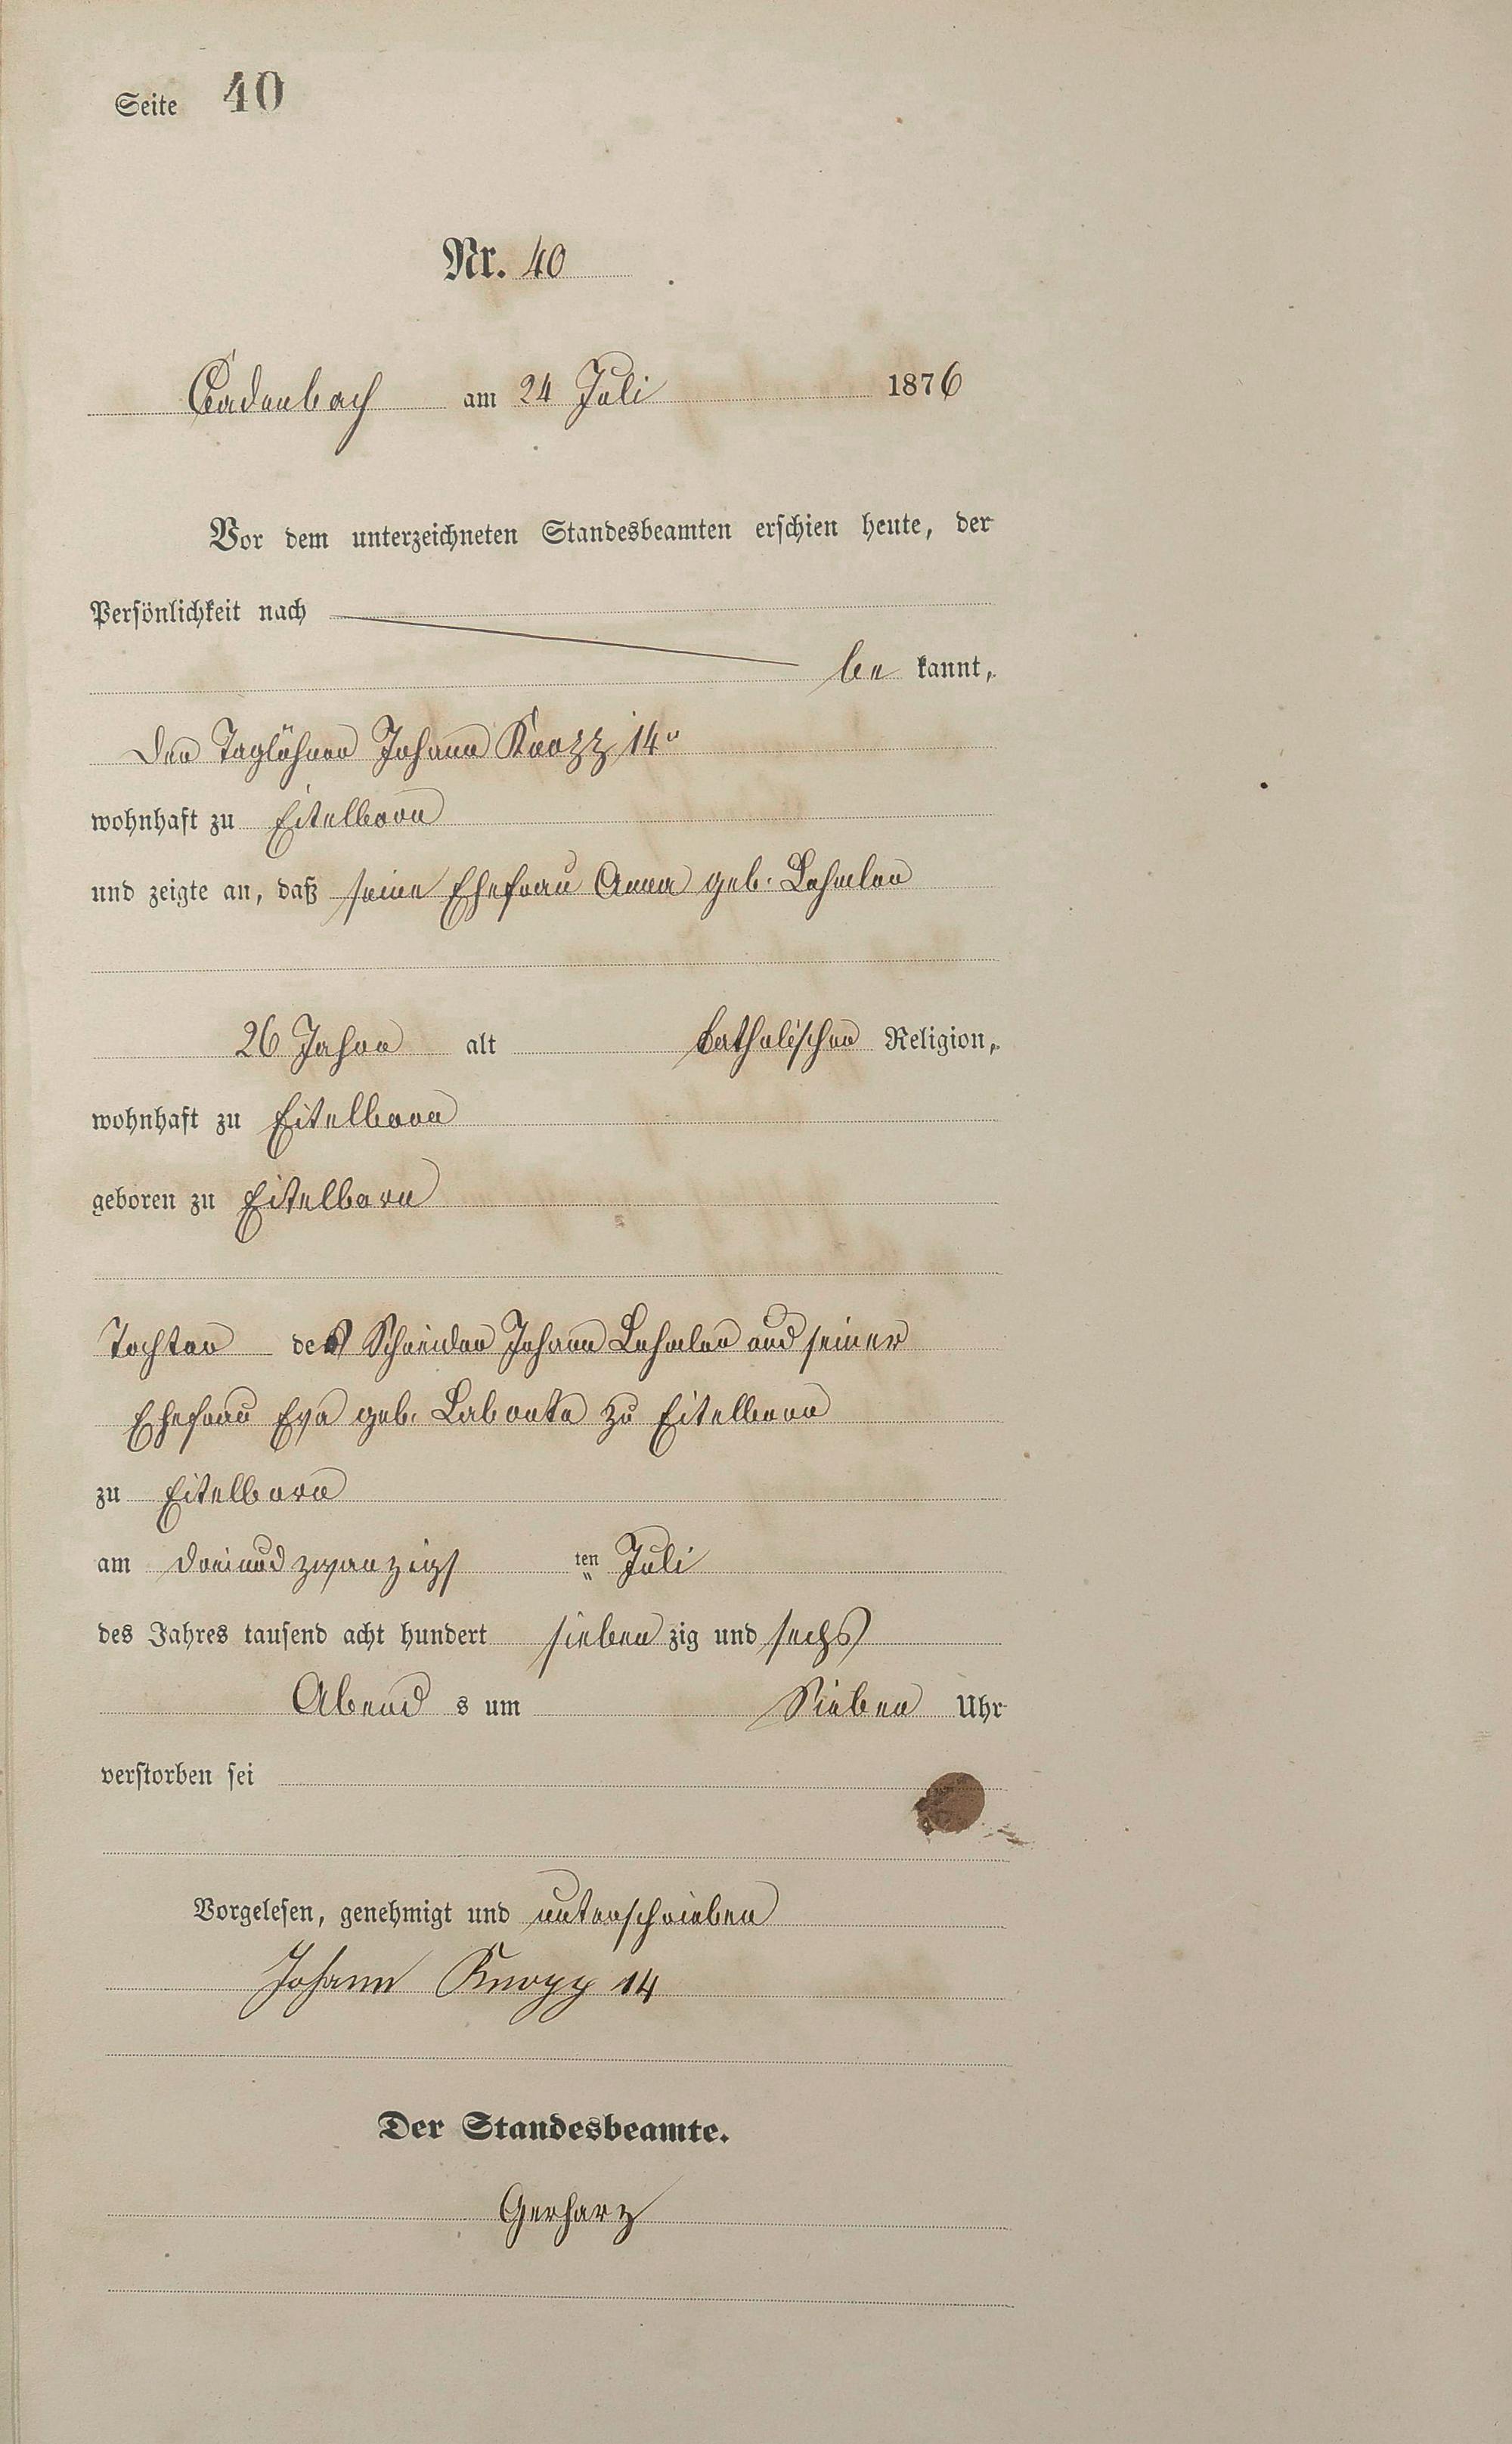 Seite 40
Nr. 40
Cadenbach am 24 Juli 1876
Vor dem unterzeichneten Standesbeamten erschien heute, der
Persönlichkeit nach
be kannt,
Der Taglöhner Johann Knopp 14r
wohnhaft zu Eitelborn
und zeigte an, daß seine Ehefrau Anna geb. Lehmler
26 Jahre alt katholischer Religion,
wohnhaft zu Eitelborn
geboren zu Eitelborn
Tochter des Schneider Johann Lehmler und seiner
Ehefrau Eva geb. Labonte zu Eitelborn
zu Eitelborn
am dreiundzwanzigs ten Juli
des Jahres tausend acht hundert sieben zig und sechs
Abend s um Sieben Uhr
verstorben sei
Vorgelesen, genehmigt und unterschrieben
Johann Knopp 14
Der Standesbeamte.
Gerharz